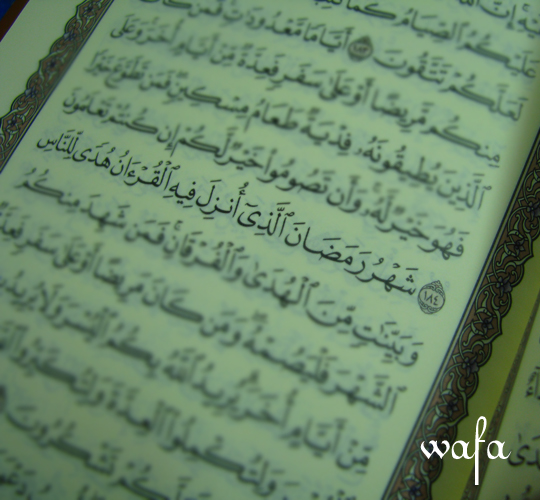 عَلَيْكُمُ ٱلصِّيَامُ كَمَا
لَعَلَّكُمْ تَتَّقُونَ ١٨٣ أَيَّامًا مَّعْدُودَٰتٍ فَمَن كَانَ
مِنكُم مَّرِيضًا أَوْ عَلَىٰ سَفَرٍ فَعِدَّةٌ مِّنْ أَيَّامٍ أُخَرَ وَعَلَى
ٱلَّذِينَ يُطِيقُونَهُۥ فِدْيَةٌ طَعَامُ مِسْكِينٍ فَمَن تَطَوَّعَ خَيْرًا
فَهُوَ خَيْرٌ لَّهُۥ وَأَن تَصُومُوا۟ خَيْرٌ لَّكُمْ إِن كُنتُمْ تَعْلَمُونَ
١٨٤ شَهْرُ رَمَضَانَ ٱلَّذِىٓ أُنزِلَ فِيهِ ٱلْقُرْءَانُ هُدًى لِّلنَّاسِ
وَبَيِّنَٰتٍ مِّنَ ٱلْهُدَىٰ وَٱلْفُرْقَانِ فَمَن شَهِدَ مِنكُمُ
ٱلشَّهْرَ فَلْيَصُمْهُ وَمَن كَانَ مَرِيضًا أَوْ عَلَىٰ سَفَرٍ فَعِدَّةٌ
مِّنْ أَيَّامٍ أُخَرَ يُرِيدُ ٱللَّهُ بِكُمُ ٱلْيُسْرَ وَلَا يُرِيدُ
وَلِتُكْمِلُوا۟ ٱلْعِدَّةَ وَلِتُكَبِّرُوا۟ ٱللَّهَ
تَشْكُرُونَ
wafa